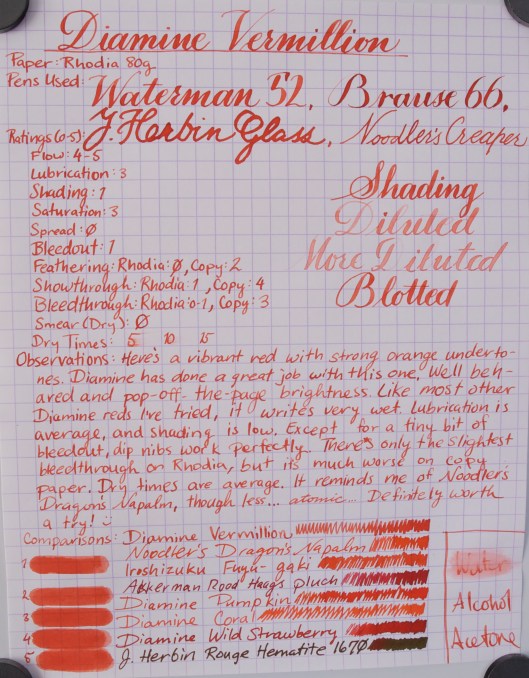 Diamine Vermillion
Paper: Rhodia 80g
Pens Used: Waterman 52, Brause 66,
J. Herbin Glass, Noodler's Creaper
Ratings (0-5):
Flow: 4-5
Lubrication: 3
Shading: 1
Saturation: 3
Spread: Ø
Bleedout: 1
Feathering: Rhodia: Ø, Copy: 2
Showthrough: Rhodia: 1, Copy: 4
Bleedthrough: Rhodia: 0-1, Copy: 3
Smear (Dry): Ø
Dry Times: 5 10 15
Shading
Diluted
More Diluted
Blotted
Observations: Here's a vibrant red with strong orange underto-
nes. Diamine has done a great job with this one. Well beh-
aved and pop-off-the-page brightness. Like most other
Diamine reds I've tried, it writes very wet. Lubrication is
average, and shading is low. Except for a tiny bit of
bleedout, dip nibs work perfectly. There's only the slightest
bleedthrough on Rhodia, but it's much worse on copy
paper. Dry times are average. It reminds me of Noodler's
Dragon's Napalm, though less... atomic... Definitely worth
a try! :)
Comparisons: Diamine Vermillion
Noodler's Dragon's Napalm
Iroshizuku Fuyu-gaki
Akkerman Rood Haags pluch
Diamine Pumpkin
Diamine Coral
Diamine Wild Strawberry
J. Herbin Rouge Hematite 1670
1
2
3
4
5
Water
Alcohol
Acetone